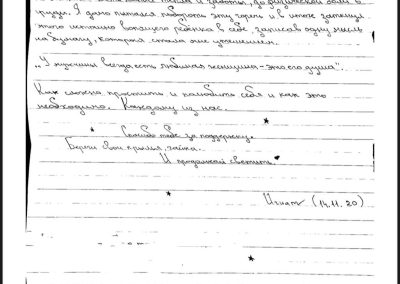 тепла и заботы, до физической боли в
груди. Я даже пытался подбросить эту горечь и в итоге заткнул
этого истошно вопящего ребёнка в себе, записав одну мысль
на бумагу, которая стала мне утешением.
„У мужчины всегда есть любимая женщина - это его душа".
Как сложно простить и полюбить себя и как это
необходимо. Каждому из нас.
Спасибо тебе за поддержку.
Береги свои крылья, чайка.
И продолжай светить.
Игнат (14.11.20)